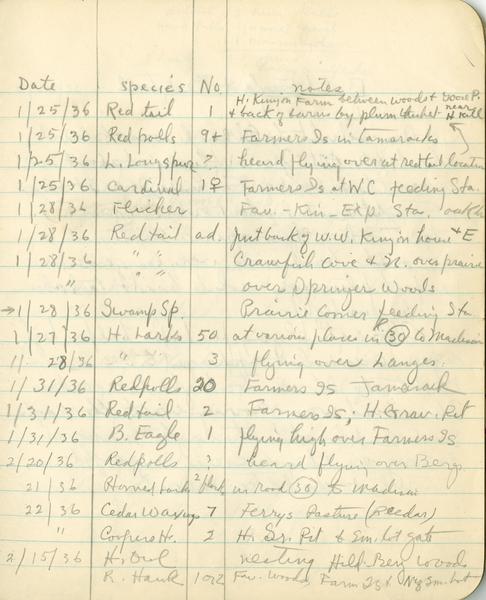 Date species No. notes
H. Kinyon Farm between woods &
1/25/36 Red tail 1 & back of barns by plum thicket near H
1/25/36 Redpolls 9+ Farmers Is in tamaracks
1/25/36 L. Longspur ? heard flying over at red tail location
1/25/36 Cardinal 1♀ Farmers Is at W.C. feeding Sta.
1/28/36 Flicker Fav. - Kin - Exp. Sta.
1/28/36 Red tail ad. just back of W.W. Kinyon house & E
1/28/36 " " Crawfish Cove & N. over prairie
" " " over Springer Woods
→1/28/36 Swamp Sp. Prairie Corner feeding Sta
1/27/36 H. Larks 50 at various places in (30) to Madison
1/28/36 " 3 flying over Langes.
1/31/36 Redpolls 20 Farmers Is Tamarack
1/31/36 Red tail 2 Farmers Is; H. Grav. Pit
1/31/36 B. Eagle 1 flying high over Farmers Is
2/20/36 Redpolls ? heard flying over Berg
21/36 Horned Larks 2 in road (30) to Madison
22/36 Cedar Waxwings 7 Ferrys Pasture
" Coopers H. 2 H. Gr. Pit & Sm. lot gate
2/15/36 H. Owl nesting Berg Woods
R. Hawk 1 or 2 Fav. Woods, Farm Is & Sm. Lot